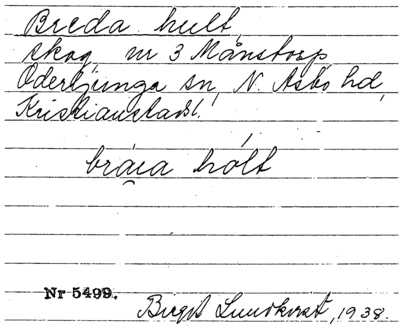 Breda hult,
skog nr 3 Månstorp,
Oderljunga sn, N. Åsbo hd,
Kristianstads l.
bräıa hólt
Nr 5499.
Birgit Lundkvist, 1938.